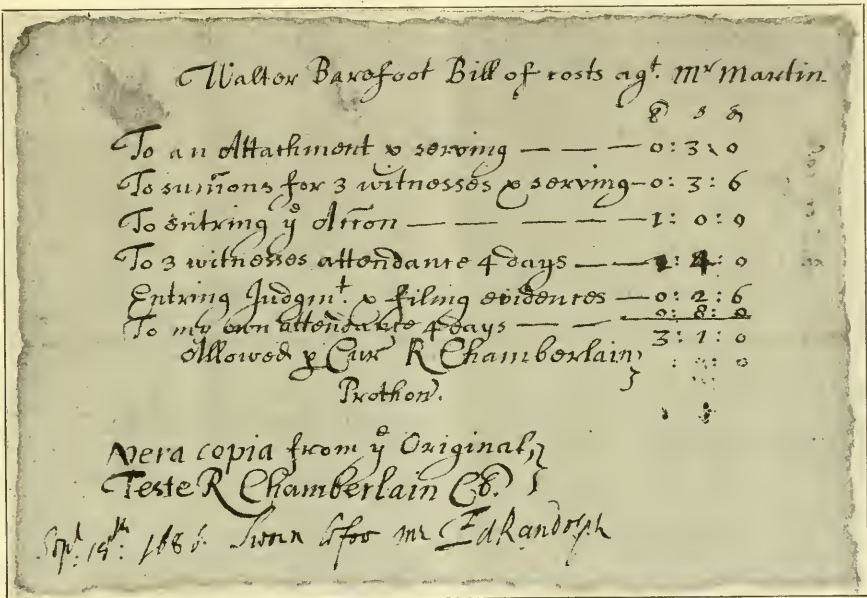 Walter Barefoot Bill of costs agt. Mr Martin
£ s d
To an Attachment & serving — — — 0: 3: 0
To sumons for 3 witnesses & serving — 0: 3: 6
To Entring ye Accon — — — — — 1: 0: 0
To 3 witnesses attendance 4 days — — 1: 4: 0
Entring Judgmt. & filing evidences — 0: 2: 6
To my own attendance 4 days — — 0: 8: 0
3: 1: 0
Allowed p Cur R Chamberlain
Prothon.
vera copia from ye Original,
Teste R Chamberlain
Sept. 18th: 168 Sworn before me Ed Randolph